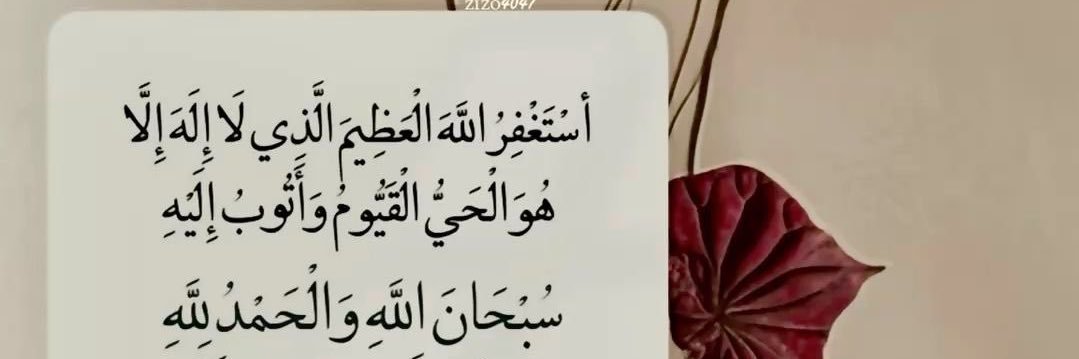 ZIZO4047
أسْتَغْفِرُ اللَّهَ الْعَظِيمَ الَّذِي لَا إِلَهَ إِلَّا
هُوَ الْحَيُّ الْقَيُّومُ وَأَتُوبُ إِلَيْهِ
سُبْحَانَ اللَّهِ وَالْحَمْدُ لِلَّهِ